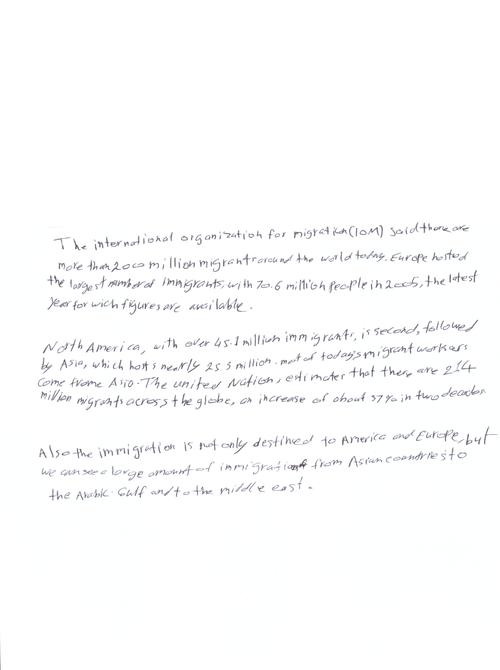 The international organization for migration (IOM) said there are
more than 2000 million migrant around the world today. Europe hosted
the largest number of immigrants, with 70.6 million people in 2005, the latest
year for wich figures are available.
North America, with over 45.1 million immigrants, is second, followed
by Asia, which hosts nearly 25.3 million. most of today's migrant workers
come frome Asia. The united Nation, estimates that there are 214
million migrants across the globe, an increase of about 37% in two decades.
Also the immigration is not only destined to America and Europe, but
we can see a large amount of immigrations from Asian countries to
the Arabic Gulf and to the middle east.